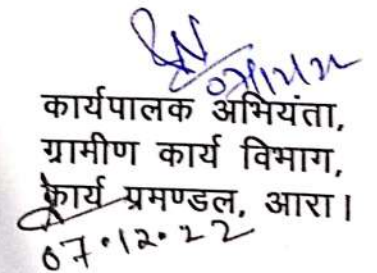 कार्यपालक अभियंता,
ग्रामीण कार्य विभाग,
कार्य प्रमण्डल, आरा।
07.12.22